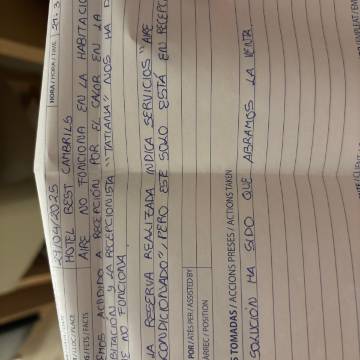 27/04/2025
HORA / HORA / TIME 21:3
HOTEL BEST CAMBRILS
AIRE NO FUNCIONA EN LA HABITACI
ACUDIDO A RECEPCIÓN POR EL CALOR EN LA
BITACIÓN Y LA RECEPCIONISTA "TATIANA" NOS HA D
E NO FUNCIONA.
LA RESERVA REALIZADA INDICA SERVICIOS "AIRE
CONDICIONADO", PERO ESTE SOLO ESTÁ EN RECEPC
POR / ATÈS PER / ASSISTED BY
CÀRREC / POSITION
S TOMADAS / ACCIONS PRESES / ACTIONS TAKEN
SOLUCIÓN HA SIDO QUE ABRAMOS LA VENT.